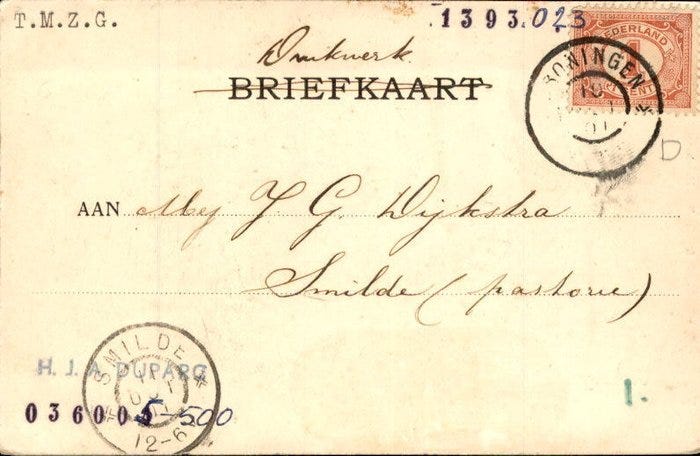 T.M.Z.G.
1393.023
Drukwerk
BRIEFKAART
NEDERLAND
1
CENT
GRONINGEN
10
AAN Mej J. G. Dijkstra
Smilde (pastorie)
SMILDE
12-6
H. J. A. DUPARC
5-500
D.
1.